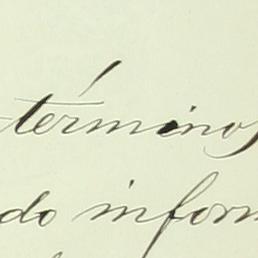 términos
do inform